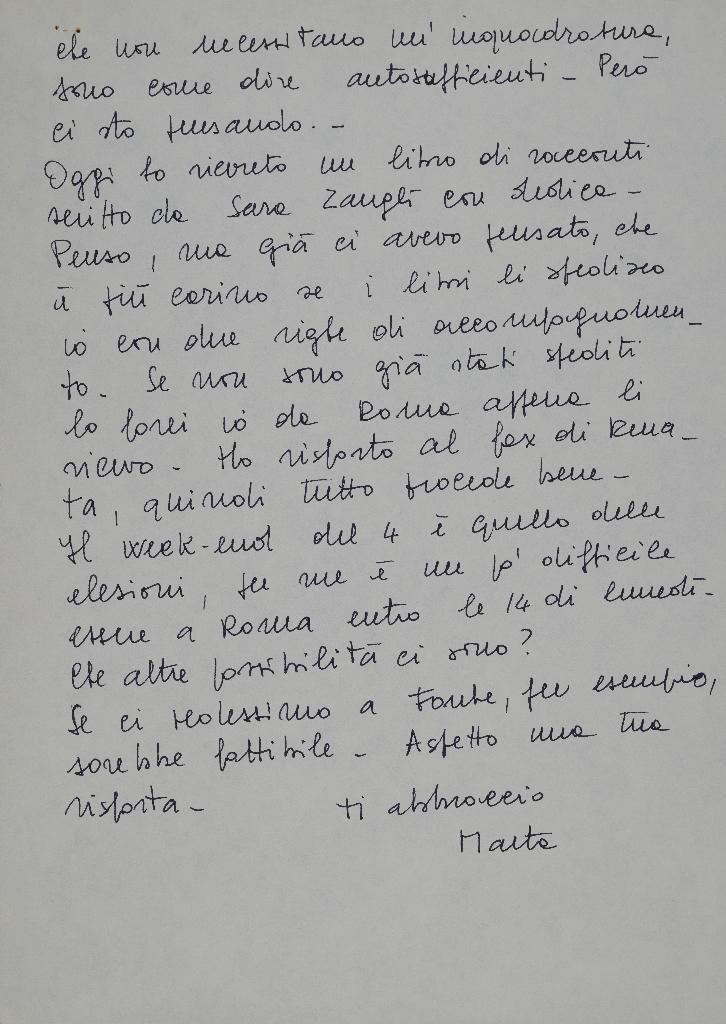 che non necessitano un' inquadratura,
sono come dire autosufficienti - Però
ci sto pensando. -
Oggi ho ricevuto un libro di racconti
scritto da Sara Zanghì con dedica -
Penso, ma già ci avevo pensato, che
è più carino se i libri li spedisco
io con due righe di accompagnamen-
to. Se non sono già stati spediti
lo farei io da Roma appena li
ricevo - Ho risposto al fax di Rena-
ta, quindi tutto procede bene -
Il week-end del 4 è quello delle
elezioni, per me è un pò difficile
essere a Roma entro le 14 di lunedì -
Che altre possibilità ci sono?
Se ci vedessimo a Fonte, per esempio,
sarebbe fattibile - Aspetto una tua
risposta -
ti abbraccio
Marta